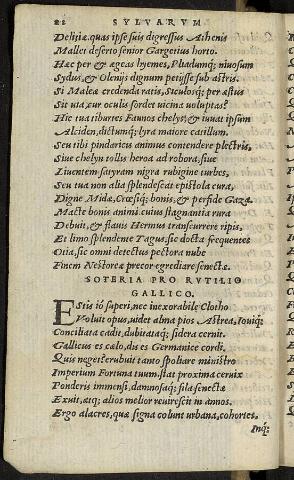 22 SYLVARVM
Delitiæ, quas ipse suis digressus Athenis
Mallet deserto senior Gargetius horto.
Hæc per & ægeas hyemes, Pliadumq; niuosum
Sydus, & Olenijs dignum petijsse sub astris.
Si Maleæ credenda ratis, Siculosq; per æstus
Sit uia, cur oculis sordet uicina uoluptas?
Hic tua tiburtes Faunos chelys, & iuuat ipsum
Alciden, dictumq; lyra maiore catillum.
Seu tibi pindaricis animus contendere plectris,
Siue chelyn tollis heroa ad robora, siue
Liuentem satyram nigra rubigine turbes,
Seu tua non alia splendescat epistola cura,
Digne Midæ, Crœsiq; bonis, & perside Gaza.
Macte bonis animi. cuius stagnantia rura
Debuit, & flauis Hermus transcurrere ripis,
Et limo splendente Tagus. sic docta frequentes
Otia, sic omni detectus pectora nube
Finem Nestoreæ precor egrediare senectæ.
SOTERIA PRO RVTILIO
GALLICO.
Estis iô superi, nec inexorabile Clotho
Voluit opus, uidet alma pios Astræa, Iouiq;
Conciliata cadit, dubitataq; sidera cernit
Gallicus es cælo, dis es Germanice cordi,
Quis neget? erubuit tanto spoliare ministro
Imperium Fortuna tuum. stat proxima ceruix
Ponderis immensi, damnosaq; fila senectæ
Exuit, atq; alios melior reuirescit in annos.
Ergo alacres, quæ signa colunt urbana, cohortes,
Inq;